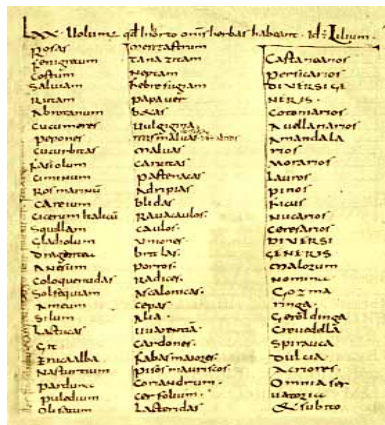 Lxx · Uolum; qđ Inhorto omis herbas habeant · Id: Lilium ·
Rosas
fenigrecum
Costum
Saluiam
Rutam
Abrotanum
Cucumeres
pepones
Cucurbitas
fasiolum
Ciminum
Ros marinũ
Careium
Cicerum Italicũ
Squillam
Gladiolum
Dragantea
Anesum
Coloquentidas
Solsequiam
Ameum
Silum
Lactucas
Git
Erucaalba
Nasturtium
parduna
puledium
Olisatum
mentastrum
Tanazitam
Neptam
febrefugiam
papauer
betas
Uulgigina
maluas
Caruitas
pastenacas
Adripias
blidas
Rauacaulos ·
Caulos ·
Uniones ·
britlas ·
porros ·
Radices ·
Ascalonicas ·
cepas ·
Alia ·
Uuarentiã
Cardones ·
fabasmaiores ·
pisos mauriscos
Coriandrum ·
cerfolium ·
Lacteridas
Castanearios
Persicarios
DIVERSI GE
NERIS ·
Cotoniarios
Auellanarios
Amandala
rios
Morarios
Lauros
pinos
ficus
Nucarios
Ceresarios
DIVERSI
GENERIS ·
Malorum
Nomine
Gozma
ringa ·
Geroldinga
Creuedellã
Spirauca
Dulcia
Acriores
Omnia ser
uatoria
& subito